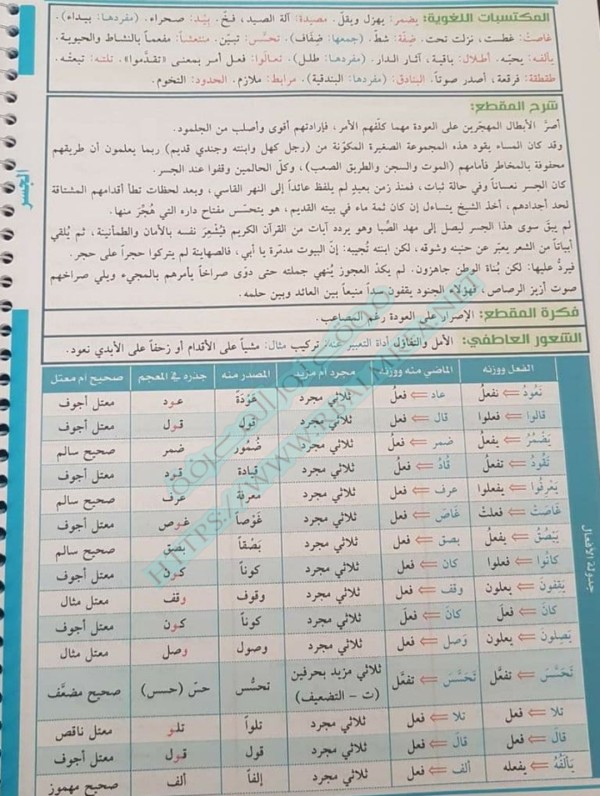 المكتسبات اللغوية: يضمر: يهزل ويقلّ. مصيدة: آلة الصيد، فخّ. بِيْد: صحراء. (مفردها: بيداء).
غاصت: غطست، نزلت تحت. ضِفّة: شطّ. (جمعها: ضِفَاف). تحسّس: تبيّن. منتعشاً: مفعماً بالنشاط والحيوية.
يألفه: يحبّه. أطلال: باقية، آثار الدار. (مفردها: طلل). تعالَوا: فعل أمر بمعنى «تقدّموا». تلته: تبعته.
طقطقة: فرقعة، أصدر صوتاً. البنادق: (مفردها: البندقية). مرابط: ملازم. الحدود: التخوم.
شرح المقطع:
أصرّ الأبطال المهجّرين على العودة مهما كلّفهم الأمر، فإرادتهم أقوى وأصلب من الجلمود.
وقد كان المساء يقود هذه المجموعة الصغيرة المكوّنة من (رجل كهل وابنته وجندي قديم) ربما يعلمون أن طريقهم
محفوفة بالمخاطر فأمامهم (الموت والسجن والطريق الصعب)، وكلّ الحالمين وقفوا عند الجسر.
كان الجسر نعساناً وفي حالة ثبات، فمنذ زمن بعيدٍ لم يلفظ عائداً إلى النهر القاسي، وبعد لحظات تطأ أقدامهم المشتاقة
لحد أجدادهم، أخذ الشيخ يتساءل إن كان ثمة ماء في بيته القديم، هو يتحسّس مفتاح داره التي هُجّرَ منها.
لم يبق سوى هذا الجسر ليصل إلى مهد الصِّبا وهو يردد آيات من القرآن الكريم فيُشْعِرَ نفسه بالأمان والطمأنينة، ثم يُلقي
أبياتاً من الشعر يعبّر عن حنينه وشوقه، لكن ابنته تُجيبه: إن البيوت مدمّرة يا أبي، فالصهاينة لم يتركوا حجراً على حجر.
فيردّ عليها: لكن بُناة الوطن جاهزون. لم يكدْ العجوز يُنهي جملته حتى دوّى صراخاً يأمرهم بالمجيء ويلي صراخهم
صوت أزيز الرصاص، فهؤلاء الجنود يقفون سداً منيعاً بين العائد وبين حلمه.
فكرة المقطع: الإصرار على العودة رغم المصاعب.
الشعور العاطفي: الأمل والتفاؤل أداة التعبير عنه: تركيب مثال: مشياً على الأقدام أو زحفاً على الأيدي نعود.
الفعل ووزنه الماضي منه ووزنه مجرد أم مزيد المصدر منه جذره في المعجم صحيح أم معتل
نَعُودُ ⇐ نفعلُ عاد ⇐ فعلُ ثلاثي مجرد عَوْدَةً عود معتل أجوف
قالوا ⇐ فعلوا قال ⇐ فعل ثلاثي مجرد قول قول معتل أجوف
يَضْمُرُ ⇐ يفعلُ ضمر ⇐ فعل ثلاثي مجرد ضُمُور ضمر صحيح سالم
تَقُودُ ⇐ تفعلُ قادُ ⇐ فعلُ ثلاثي مجرد قيادة قود معتل أجوف
يَعْرِفُوا ⇐ يفعلوا عرف ⇐ فعل ثلاثي مجرد معرفة عرف صحيح سالم
غَاصَتْ ⇐ فعلتْ غَاصَ ⇐ فعلَ ثلاثي مجرد غَوْصاً غوص معتل أجوف
يَبْصُقُ ⇐ يفعلُ بصق ⇐ فعل ثلاثي مجرد بَصْقاً بصق صحيح سالم
كانُوا ⇐ فعلوا كان ⇐ فعل ثلاثي مجرد كوناً كون معتل أجوف
يَقِفونَ ⇐ يعلون وقف ⇐ فعل ثلاثي مجرد وقوف وقف معتل مثال
كانَ ⇐ فعلَ كانَ ⇐ فعلَ ثلاثي مجرد كوناً كون معتل أجوف
يَصِلونَ ⇐ يعلون وَصل ⇐ فعل ثلاثي مجرد وصول وصل معتل مثال
تَحَسَّسَ ⇐ تفعَّل تَحَسَّسَ ⇐ تفعَّل ثلاثي مزيد بحرفين (ت – التضعيف) تحسُّس حسّ (حسس) صحيح مضعّف
تلا ⇐ فعل تلا ⇐ فعل ثلاثي مجرد تلواً تلو معتل ناقص
قالَ ⇐ فعل قالَ ⇐ فعل ثلاثي مجرد قول قول معتل أجوف
يَألَفُهُ ⇐ يفعله ألف ⇐ فعل ثلاثي مجرد إلفاً ألف صحيح مهموز
الجسر
جدولة الأفعال
HTTPS://WWW.RBALMIRSA.NET